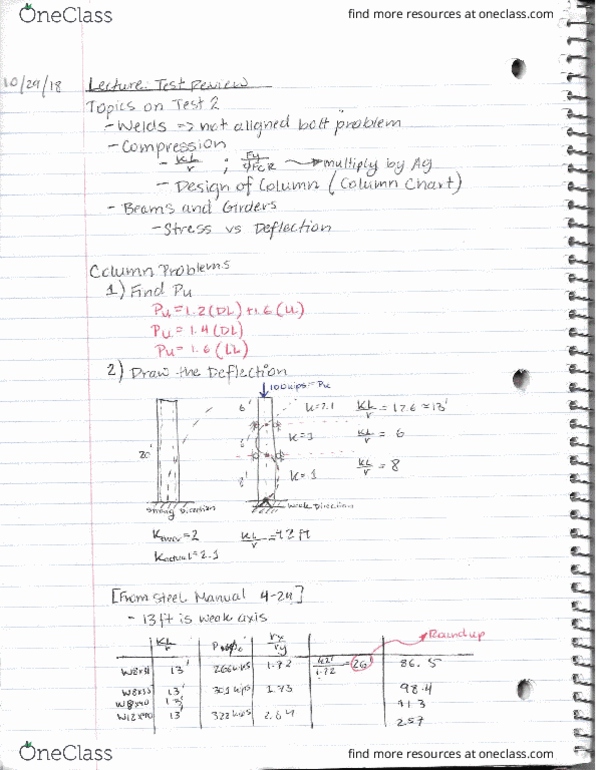 OneClass
find more resources at oneclass.com
10/29/18
Lecture: Test Review
Topics on Test 2
- Welds => not aligned bolt problem
- Compression
- KL/r ; Fy/φFCR → multiply by Ag
- Design of Column (Column Chart)
- Beams and Girders
- Stress vs Deflection
Column Problems
1) Find Pu
Pu = 1.2(DL) + 1.6(LL)
Pu = 1.4(DL)
Pu = 1.6(LL)
2) Draw the Deflection
100kips = Pu
6' K=2.1 KL/r = 12.6 ≈ 13'
K=1 KL/r = 6
20'
8' K=1 KL/r = 8
strong Direction weak Direction
K = 2 KL/r = 42 ft
Kactual = 2.1
[From Steel Manual 4-24]
- 13ft is weak axis
Round up
KL/r rx/ry
W8x31 13' 266kips 1.72 26 86.5
13' 301kips 1.73 98.4
W8x40 13'
13' 322kips 2.64 2.57
OneClass
find more resources at oneclass.com